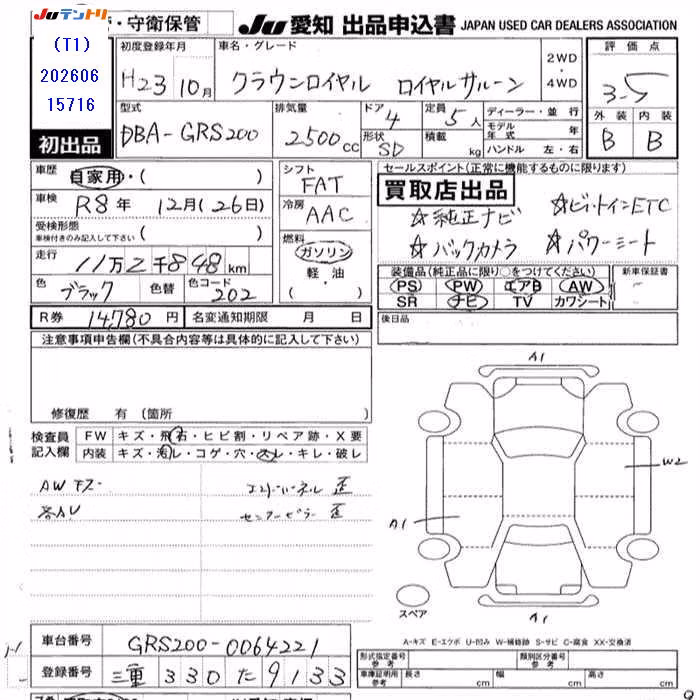 JUテントリ
・守衛保管
JU 愛知 出品申込書 JAPAN USED CAR DEALERS ASSOCIATION
(T1)
202606
15716
初出品
初度登録年月
H23 10月
車名・グレード
クラウンロイヤル ロイヤルサルーン
2WD
・
4WD
評価点
3.5
外装 内装
B B
型式
DBA-GRS200
排気量
2500cc
ドア 4
形状 SD
定員 5人
積載 kg
ディーラー・並行
モデル年式 年
ハンドル 左・右
車歴 自家用・( )
車検 R8年 12月(26日)
受検形態
車検付きのみ記入して下さい ( )
走行 11万2千848km
色 ブラック 色替 色コード 202
シフト
FAT
冷房
AAC
燃料
ガソリン
軽・油
( ・ )
セールスポイント(正常に機能するものに限ります)
買取店出品
☆純正ナビ ☆ビルトインETC
☆バックカメラ ☆パワーシート
装備品(純正品に限り○をつけてください)
PS PW エアB AW
SR ナビ TV カワシート
新車保証書
R券 14,780円 名変通知期限 月 日
後日品
注意事項申告欄(不具合内容等は具体的に記入して下さい)
修復歴 有(箇所
検査員記入欄
FW キズ・飛石・ヒビ割・リペア跡・X要
内装 キズ・汚レ・コゲ・穴・スレ・キレ・破レ
AWキズ
各AU
センターピラー歪
A1
W2
A1
スペア
A1
A-キズ E-エクボ U-凹み W-補修跡 S-サビ C-腐食 XX-交換済
車台番号 GRS200-0064221
登録番号 三重 330 た 9133
形式指定番号 参考
類別区分番号 参考
車庫証明用 参考
長さ cm
幅 cm
高さ cm